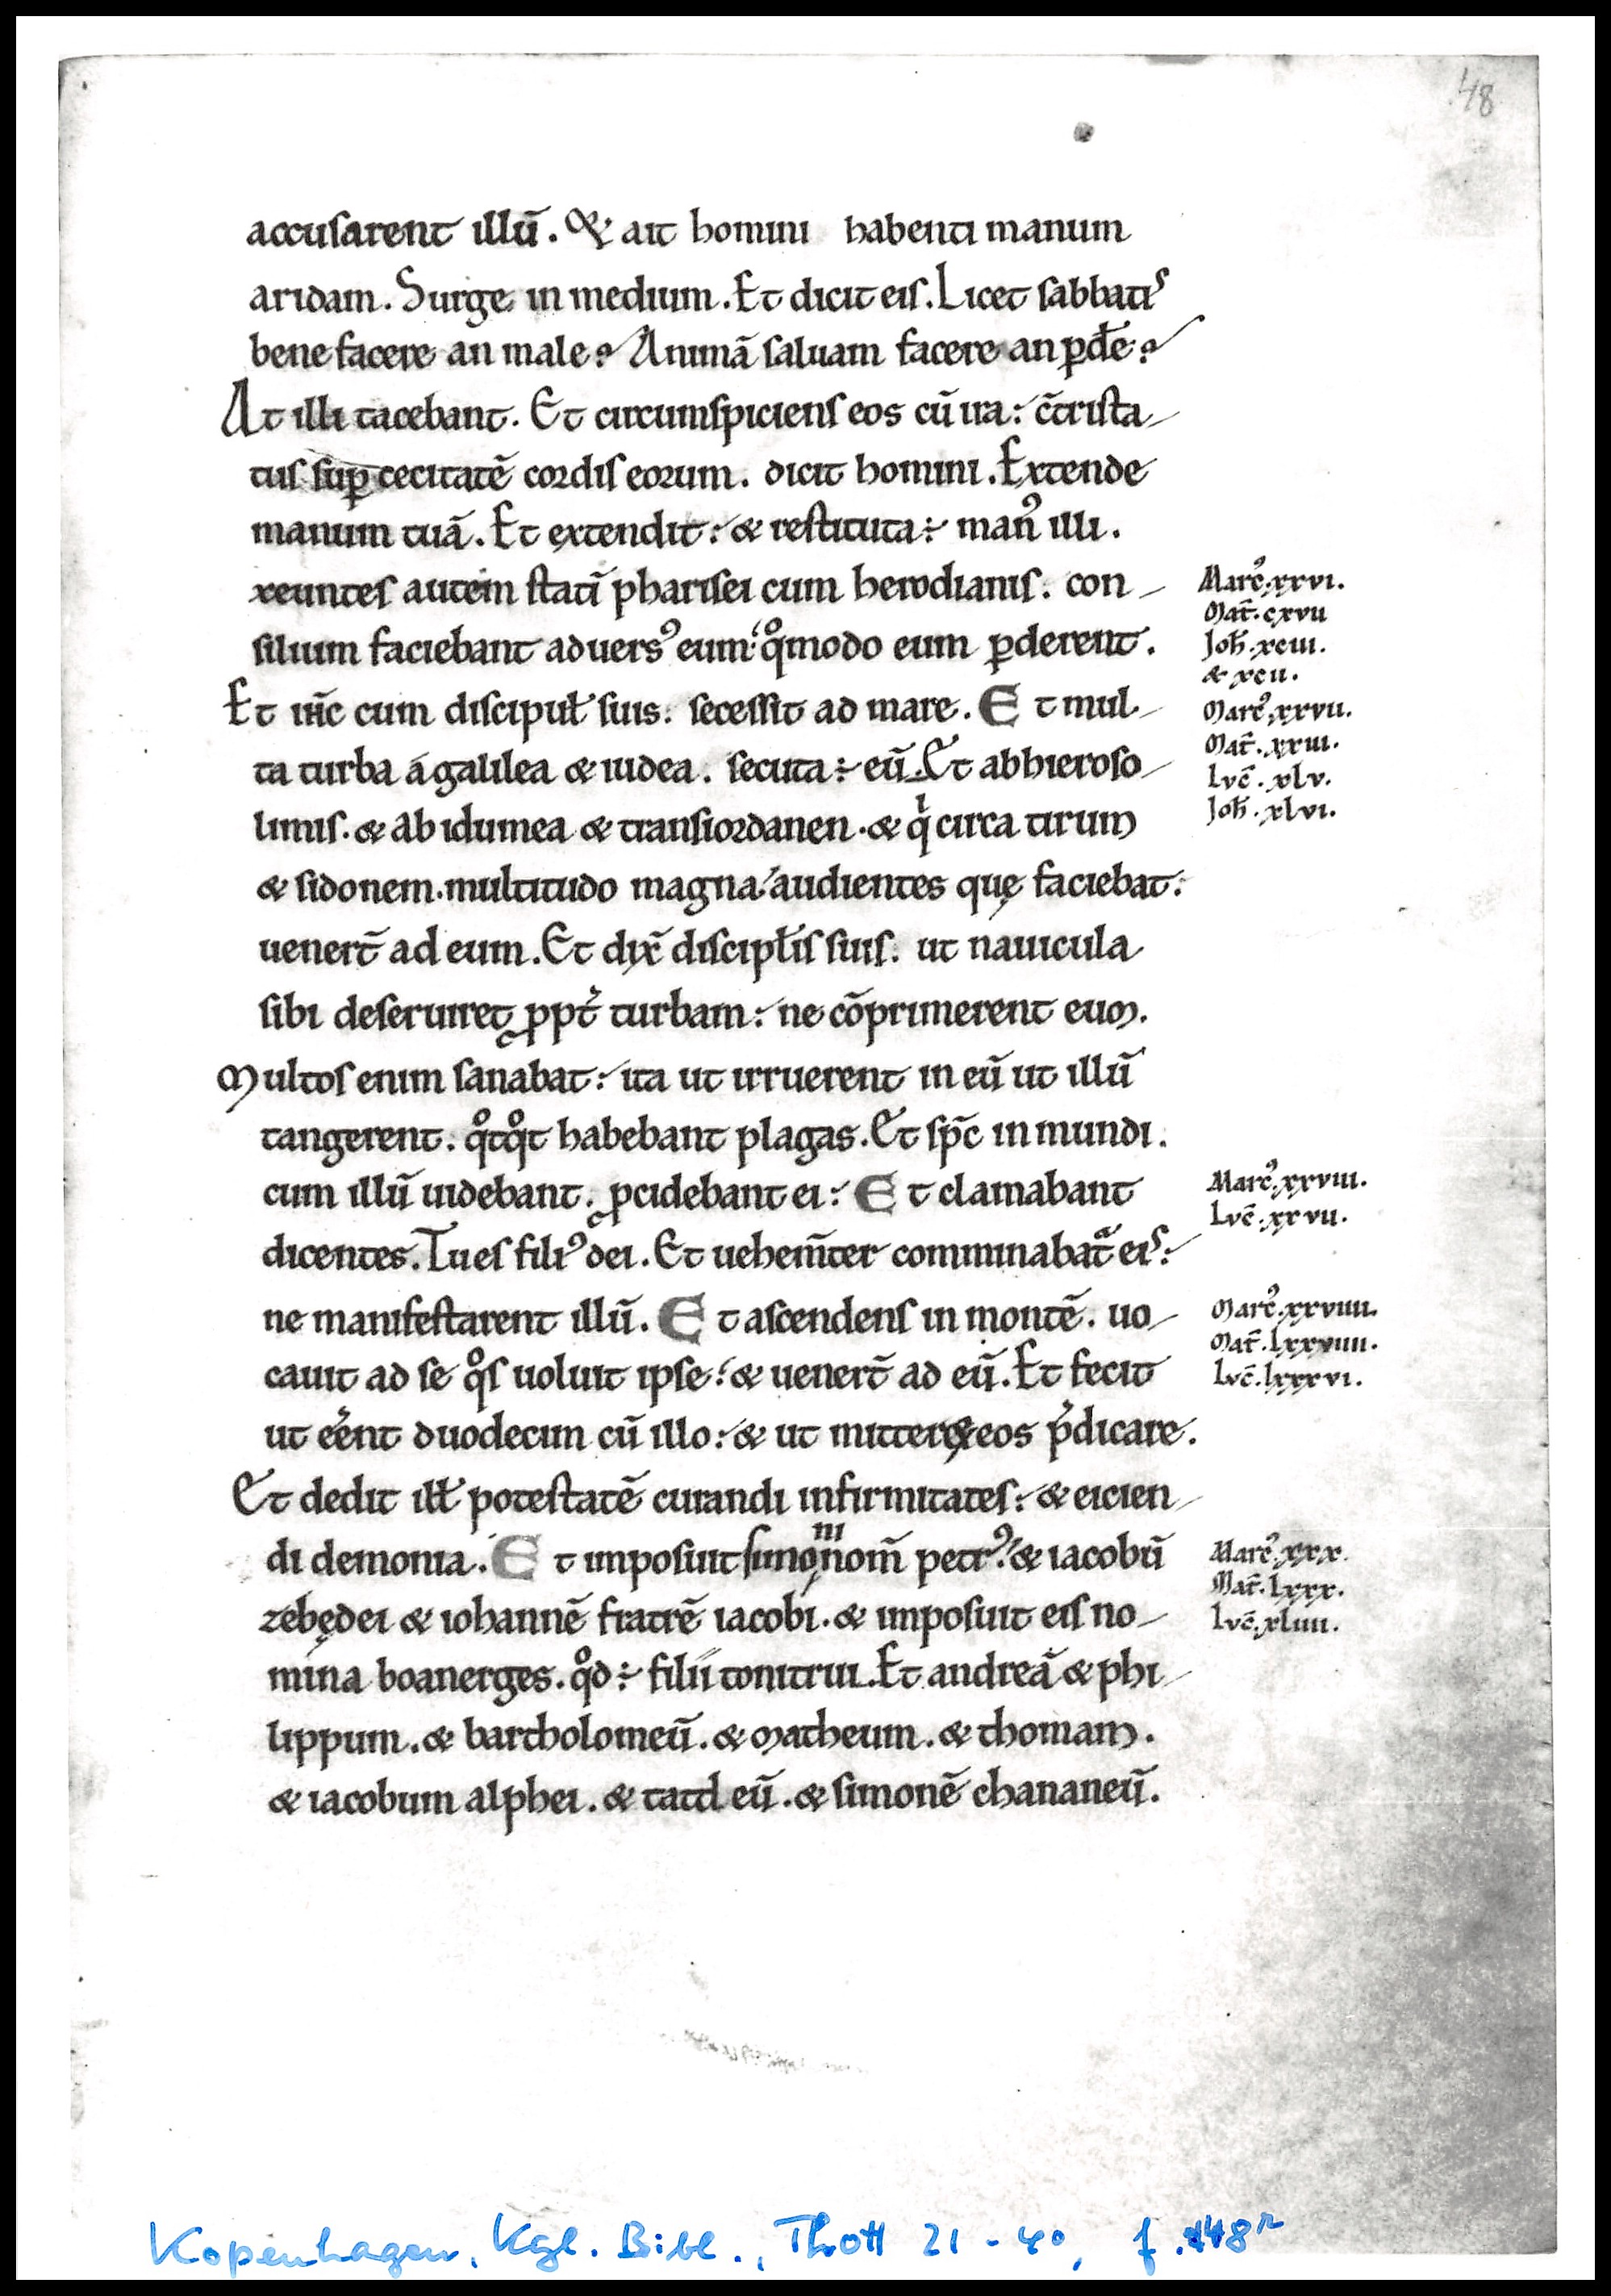 48
accusarent illū. & ait homini habenti manum
aridam. Surge in medium. Et dicit eis. Licet sabbatis
bene facere an male? Animā saluam facere an ꝑdēe?
At illi tacebant. Et circumspiciens eos cū ira: c̄trista-
tus suꝑ cecitatē cordis eorum. dicit homini. Extende
manum tuā. Et extendit: & restituta ÷ manꝰ illi.
xeuntes autem statī pharisei cum herodianis. con-
silium faciebant aduersꝰ eum: qͦmodo eum ꝑderent.
Et ih̄c cum discipuł suis. secessit ad mare. Et mul-
ta turba a galilea & iudea. secuta ÷ eū. Et ab hieroso-
limis. & ab idumea & transiordanen. & qͥ circa tirum
& sidonem. multitudo magna: audientes quę faciebat:
uener̄t ad eum. Et dix̄ discipl̄is suis. ut nauicula
sibi deseruiret ꝓpt̄ turbam: ne cōprimerent eum.
Multos enim sanabat: ita ut irruerent in eū ut illū
tangerent. qͦtqͦt habebant plagas. Et sp̄c inmundi.
cum illū uidebant. ꝓcidebant ei: Et clamabant
dicentes. Tu es filiꝰ dei. Et uehem̄ter comminabat᷑ eis:
ne manifestarent illū. Et ascendens in montē. uo-
cauit ad se qͦs uoluit ipse: & uener̄t ad eū. Et fecit
ut eēnt duodecim cū illo: & ut mitter& eos p̄dicare.
Et dedit ill̄ potestatē curandi infirmitates: & eicien-
di demonia. Et imposuit simoni nom̄ petrꝰ: & iacobū
zebędei & iohannē fratrē iacobi. & imposuit eis no-
mina boanerges. qͦd ÷ filii tonitrui. Et andreā & phi-
lippum. & bartholomeū. & matheum. & thomam.
& iacobum alphei. & tatdeū. & simonē chananeū.
Marcꝰ. xxvi.
Mat̄. cxvii
Joh̄. xciii.
& xcii.
Marcꝰ. xxvii.
Mat̄. xxiii.
Lvc̄. xlv.
Joh̄. xlvi.
Marcꝰ. xxviii.
Lvc̄. xxvii.
Marcꝰ. xxviiii.
Mat̄. lxxviiii.
Lvc̄. lxxxvi.
Marcꝰ. xxx.
Mat̄. lxxx.
Lvc̄. xliiii.
Kopenhagen, Kgl. Bibl., Thott 21 - 4°, f. 48r